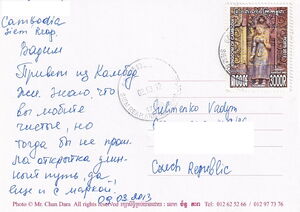 Cambodia
Siem Reap
Вадим
Привет из Камбод
жи. Знаю, что
вы любите
чистые, но
тогда бы не прош
ла открытка длин
ный путь, да
еще и с маркой!
09.03.2013
3000R
Vadym
Czech Republic
Photo © Mr. Chan Dara All rights reserved
Tel: 012 62 52 66 / 012 97 73 76